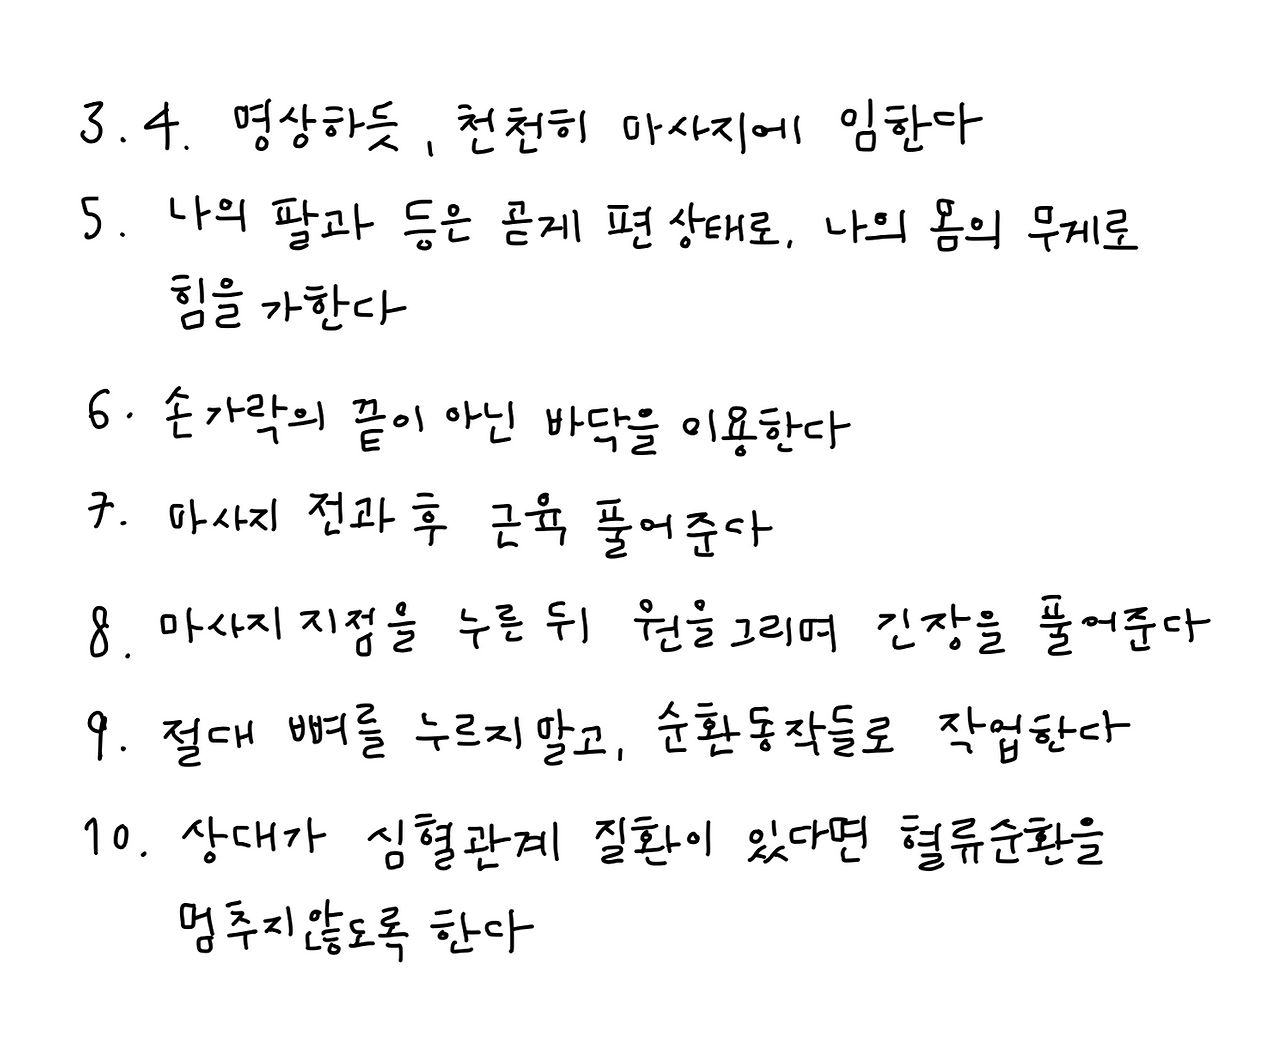 3. 4. 명상하듯, 천천히 마사지에 임한다
5. 나의 팔과 등은 곧게 편 상태로, 나의 몸의 무게로
힘을 가한다
6. 손가락의 끝이 아닌 바닥을 이용한다
7. 마사지 전과 후 근육 풀어준다
8. 마사지 지점을 누른 뒤 원을 그리며 긴장을 풀어준다
9. 절대 뼈를 누르지 말고, 순환동작들로 작업한다
10. 상대가 심혈관계 질환이 있다면 혈류순환을
멈추지않도록 한다